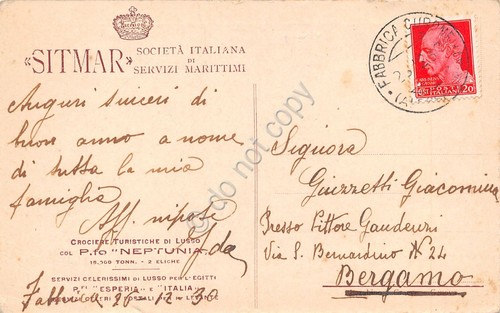 «SITMAR»
SOCIETÀ ITALIANA
DI
SERVIZI MARITTIMI
Auguri sinceri di
buon anno a nome
di tutta la mia
famiglia
Aff. nipote
Ida
CROCIERE TURISTICHE DI LUSSO
COL P.fo "NEPTUNIA"
TONN. - 2 ELICHE
SERVIZI CELERISSIMI DI LUSSO PER L'EGITTO
P.fi "ESPERIA" E "ITALIA"
Fabbrica 26-12-30
FABBRICA CUR
POSTE
ITALIANE
20
Signora
Guizzetti Giacomina
Presso Pittore Gaudenzi
Via S. Bernardino N 24
Bergamo
© do not copy